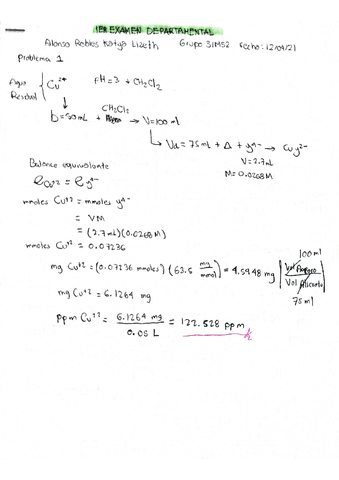 1ER EXAMEN DEPARTAMENTAL
Alonso Robles Katya Lizeth Grupo 3IM52 Fecho: 12/04/21
Problema 1
Agua Residual { Cu²⁺ pH=3 + CH₂Cl₂
CH₂Cl₂
b=50mL + → V=100 ml
↳ Va=75ml + Δ + y⁴⁻ → Cuy²⁻
V=2.7mL
M=0.0268M
Balance equivalente
eCu⁺² = ey⁴⁻
mmoles Cu⁺² = mmoles y⁴⁻
= VM
= (2.7mL)(0.0268M)
mmoles Cu⁺² = 0.07236
mg Cu⁺² = (0.07236 mmoles)(63.5 mg/mmol) = 4.5948 mg | Vol Aforo / Vol Alicuota |
100ml
75ml
mg Cu⁺² = 6.1264 mg
ppm Cu⁺² = 6.1264 mg / 0.05 L = 122.528 ppm